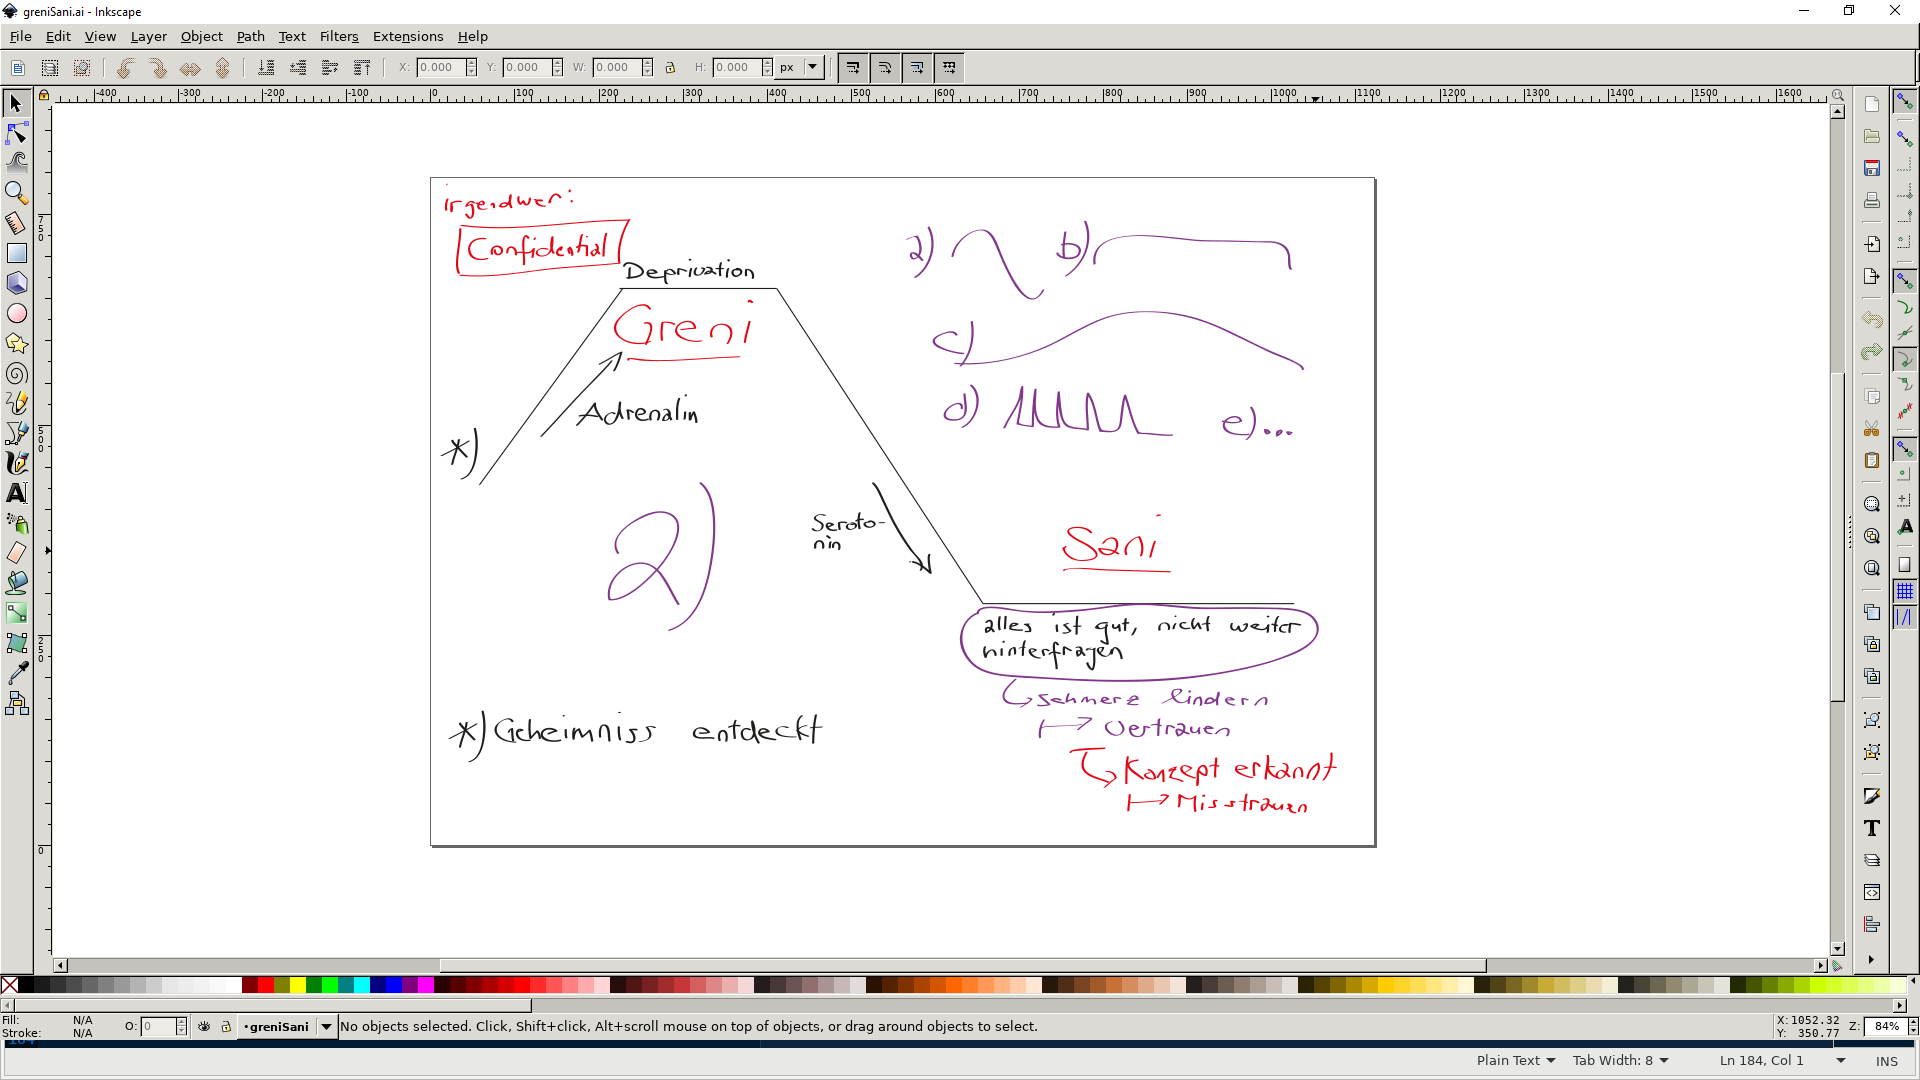 greniSani.ai - Inkscape
File Edit View Layer Object Path Text Filters Extensions Help
X: 0.000 Y: 0.000 W: 0.000 H: 0.000 px
-400 -300 -200 -100 0 100 200 300 400 500 600 700 800 900 1000 1100 1200 1300 1400 1500 1600
750
500
250
0
irgendwer:
Confidential
Deprivation
Greni
Adrenalin
*)
2)
Seroto-
nin
a) b)
c)
d) e)...
Sani
alles ist gut, nicht weiter
hinterfragen
schmerz lindern
Vertrauen
Konzept erkannt
Misstrauen
*) Geheimniss entdeckt
Fill: N/A
Stroke: N/A
O: 0
•greniSani
No objects selected. Click, Shift+click, Alt+scroll mouse on top of objects, or drag around objects to select.
X: 1052.32
Y: 350.77
Z: 84%
184
Plain Text Tab Width: 8 Ln 184, Col 1 INS